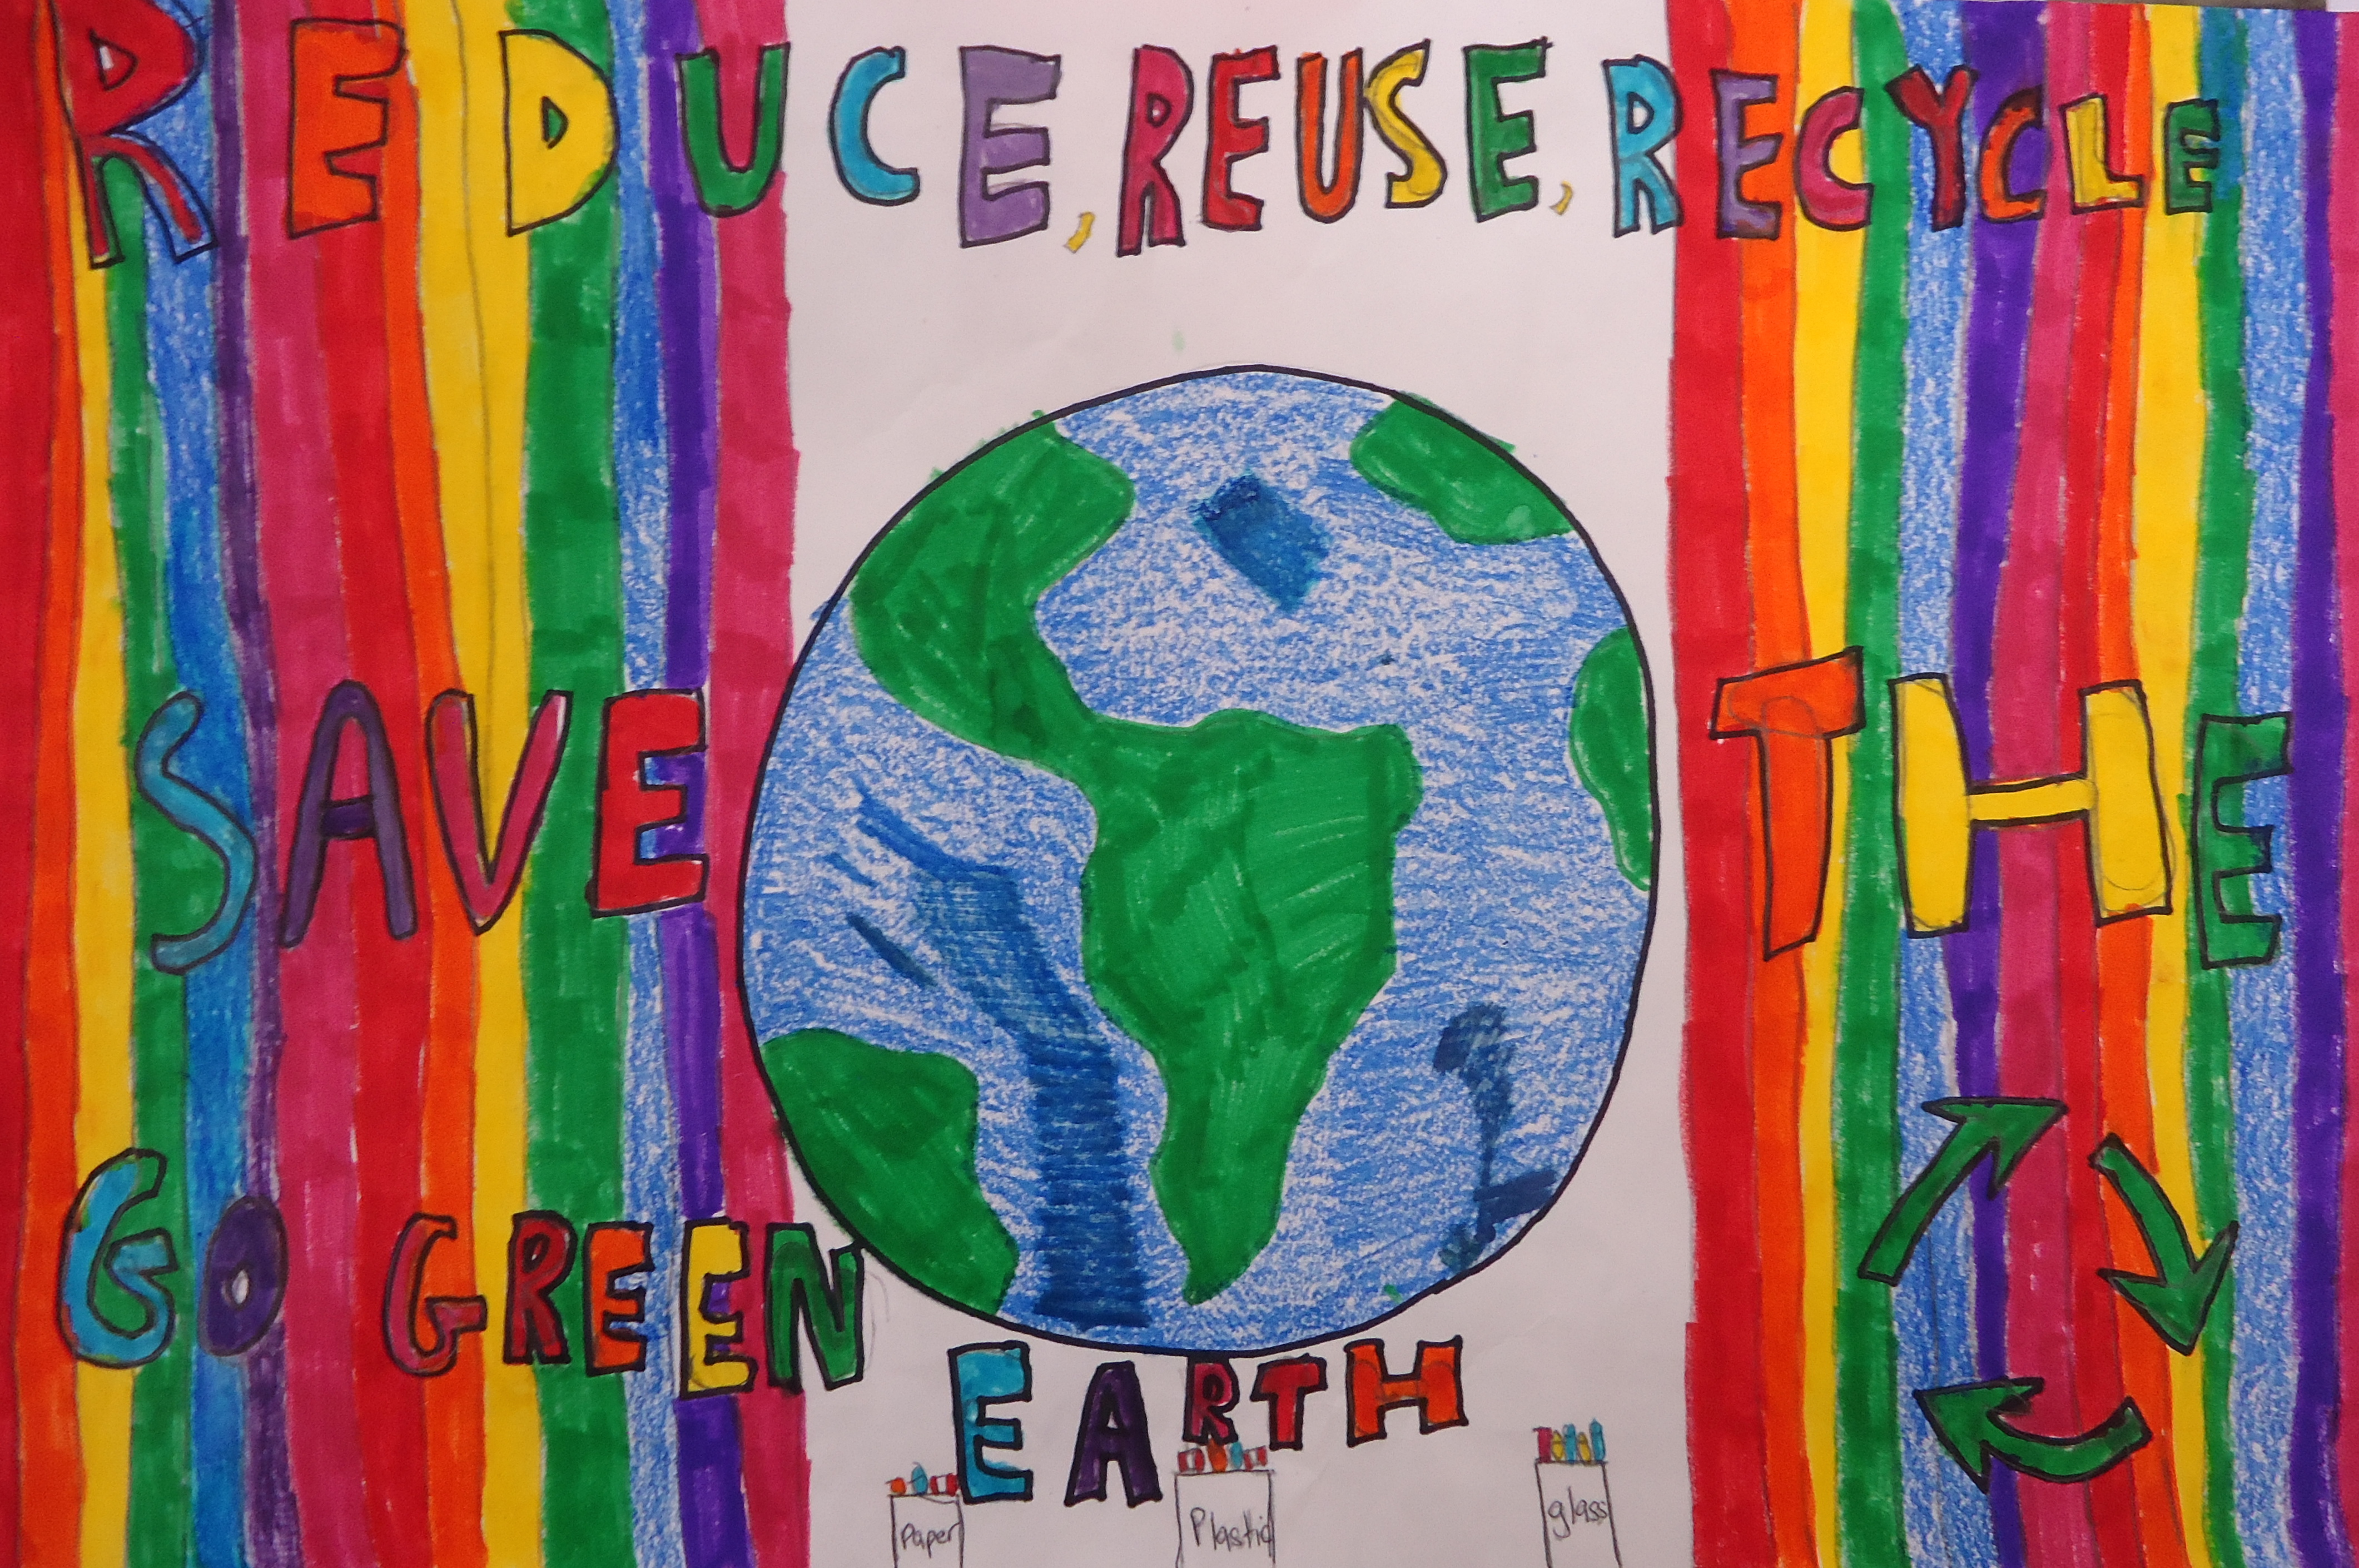 REDUCE, REUSE, RECYCLE
SAVE THE
GO GREEN
EARTH
Paper Plastic glass